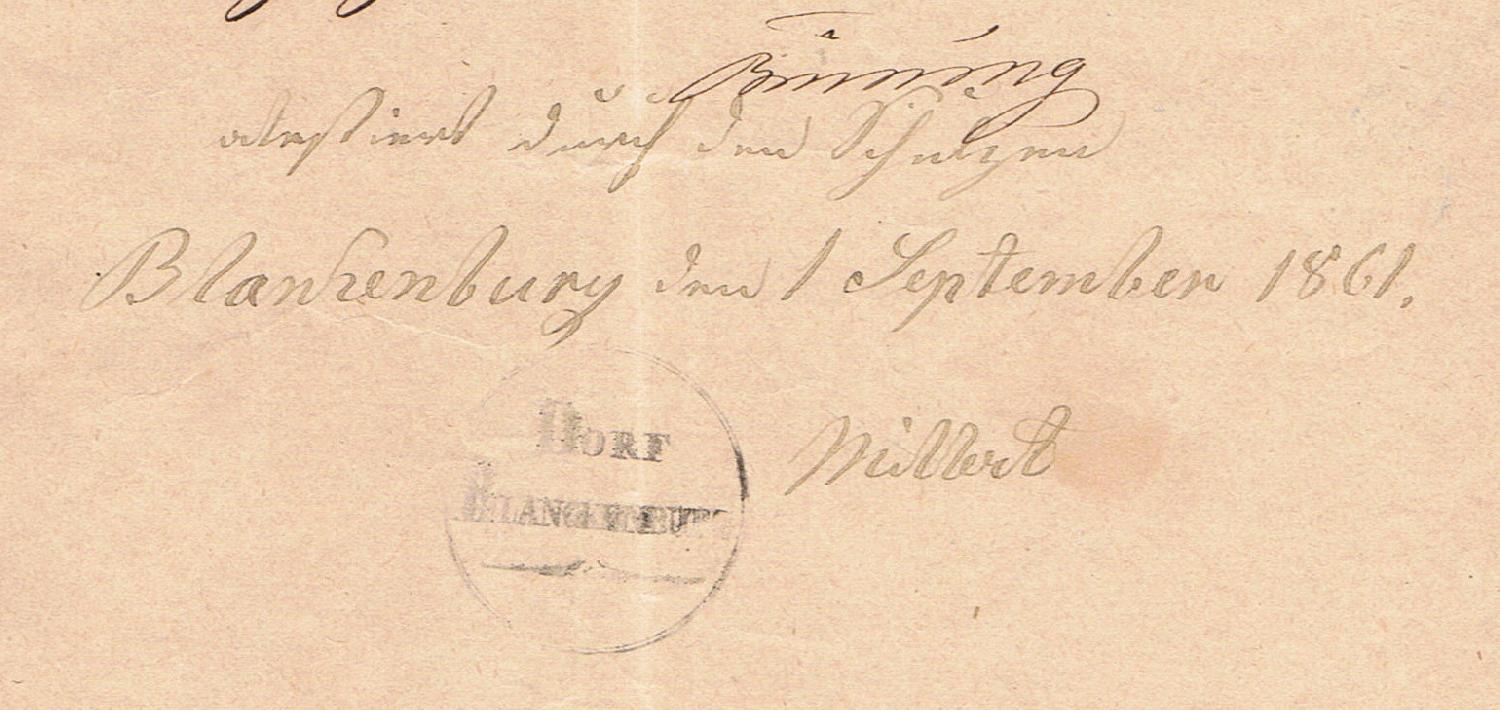 Brüning
attestiert durch den Schulzen
Blankenburg den 1 September 1861.
DORF
BLANCKENBURG